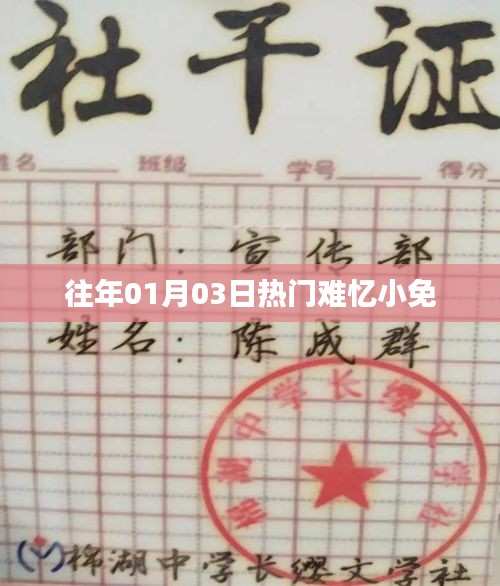 社干证
姓名 班级 学号 得分
部门：宣传部
往年01月03日热门难忆小免
姓名：陈成群
棉湖中学长缨文学社
棉湖中学长缨文学社